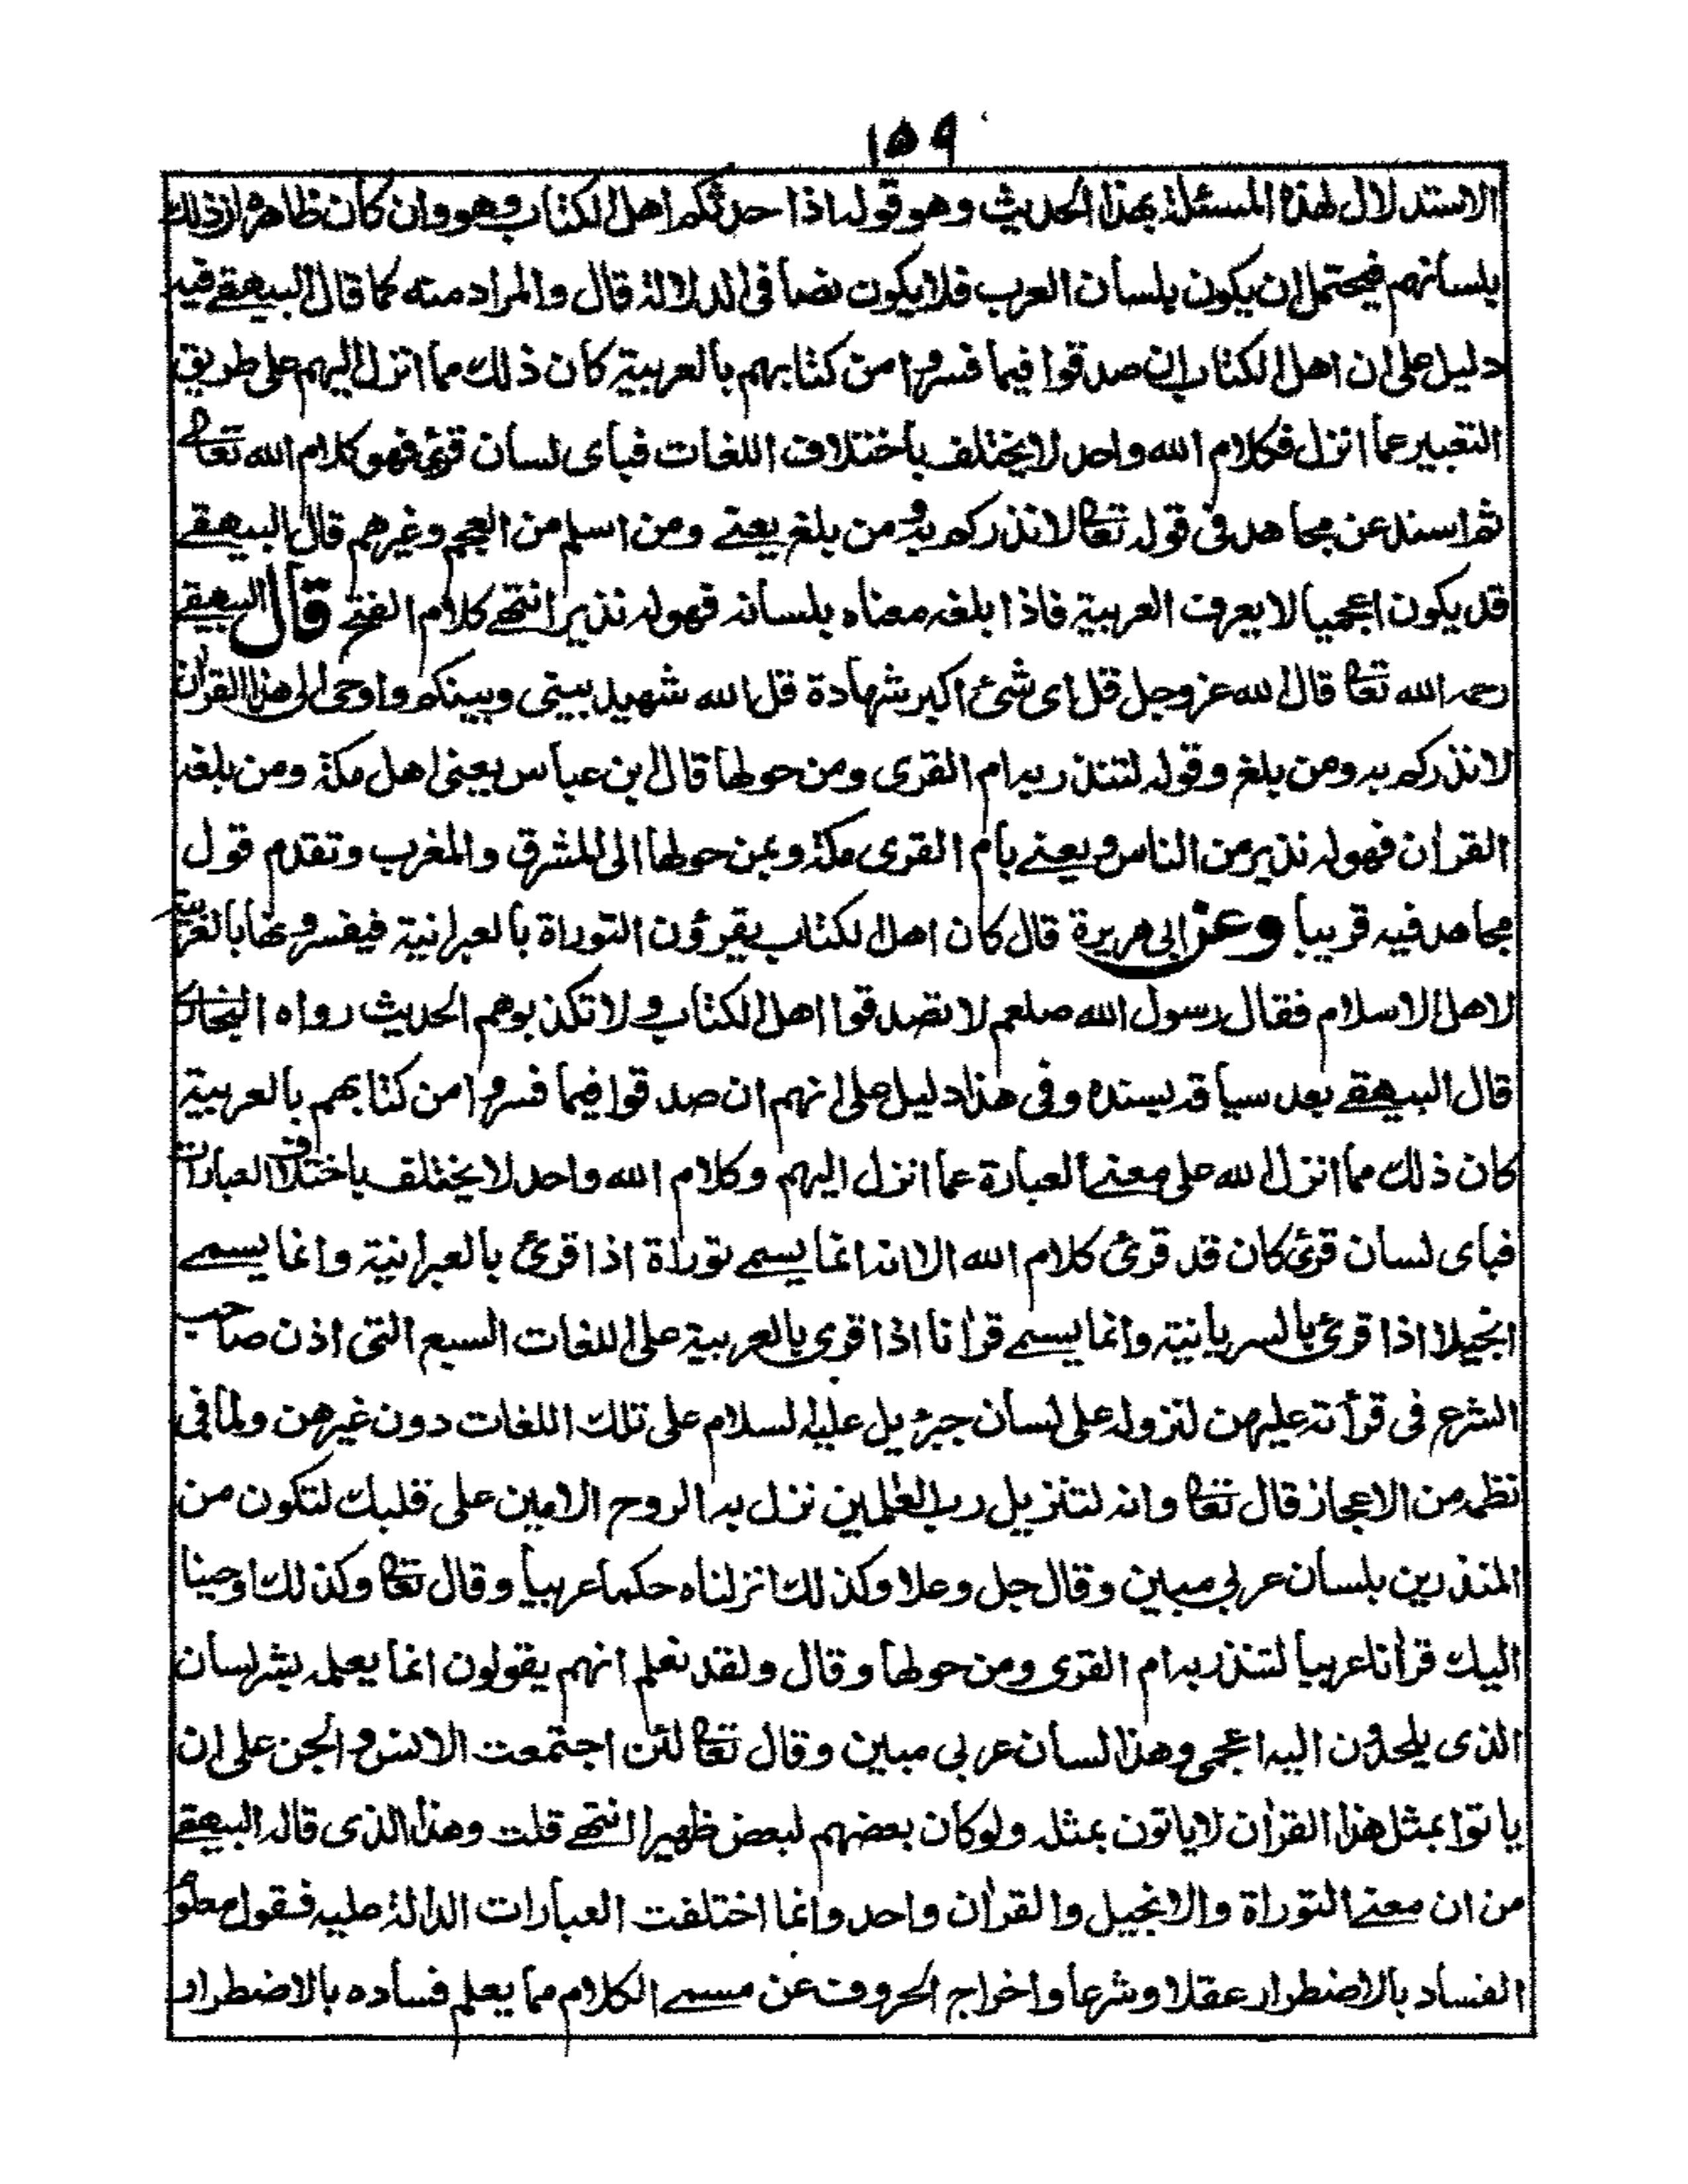 ١٥٩
الاستدلال لهذا المسئلة بهذا الحديث وهو قوله اذا حدثكم اهل الكتاب وهو وان كان ظاهره ان ذلك
بلسانهم فيحتمل ان يكون بلسان العرب فلا يكون نصا في الدلالة قال والمراد منه كما قال البيهقي فيه
دليل على ان اهل الكتاب ان صدقوا فيما فسروا من كتابهم بالعربية كان ذلك مما انزل اليهم على طريق
التعبير عما انزل فكلام الله واحد لا يختلف باختلاف اللغات فباى لسان قرئ فهو كلام الله تعالى
ثم اسند عن مجاهد فى قوله تعالى لانذركم به ومن بلغ يعنى ومن اسلم من العجم وغيرهم قال البيهقي
قد يكون اعجميا لا يعرف العربية فاذا بلغه معناه بلسانه فهو له نذير انتهى كلام الفتح قال البيهقي
رحمه الله تعالى قال الله عز وجل قل اى شئ اكبر شهادة قل الله شهيد بيني وبينكم واوحى الى هذا القران
لانذركم به ومن بلغ وقوله لتنذر به ام القرى ومن حولها قال ابن عباس يعنى اهل مكة ومن بلغه
القران فهو له نذير من الناس ويعنى بام القرى مكة وبمن حولها الى المشرق والمغرب وتقدم قول
مجاهد فيه قريبا وعن ابى هريرة قال كان اهل الكتاب يقرؤن التوراة بالعبرانية فيفسرونها بالعربية
لاهل الاسلام فقال رسول الله صلعم لا تصدقوا اهل الكتاب ولا تكذبوهم الحديث رواه البخارى
قال البيهقي بعد سياقه بسنده وفى هذا دليل على انهم ان صدقوا فيما فسروا من كتابهم بالعربية
كان ذلك مما انزل الله على معنى العبارة عما انزل اليهم وكلام الله واحد لا يختلف باختلاف العبارات
فباى لسان قرئ كان قد قرئ كلام الله الا انه انما يسمى توراة اذا قرئ بالعبرانية وانما يسمى
انجيلا اذا قرئ بالسريانية وانما يسمى قرانا اذا قرى بالعربية على اللغات السبع التى اذن صاحب
الشرع فى قرأته عليهن لنزوله على لسان جبرئيل عليه السلام على تلك اللغات دون غيرهن ولما فى
نظمه من الاعجاز قال تعالى وانه لتنزيل رب العلمين نزل به الروح الامين على قلبك لتكون من
المنذرين بلسان عربى مبين وقال جل وعلا وكذلك انزلناه حكما عربيا وقال تعالى وكذلك اوحينا
اليك قرانا عربيا لتنذر به ام القرى ومن حولها وقال ولقد نعلم انهم يقولون انما يعلمه بشر لسان
الذى يلحدون اليه اعجمى وهذا لسان عربى مبين وقال تعالى لئن اجتمعت الانس والجن على ان
ياتوا بمثل هذا القران لا ياتون بمثله ولو كان بعضهم لبعض ظهيرا انتهى قلت وهذا الذى قاله البيهقي
من ان معنى التوراة والانجيل والقران واحد وانما اختلفت العبارات الدالة عليه فقول معلوم
الفساد بالاضطرار عقلا وشرعا واخراج الحروف عن مسمى الكلام مما يعلم فساده بالاضطرار